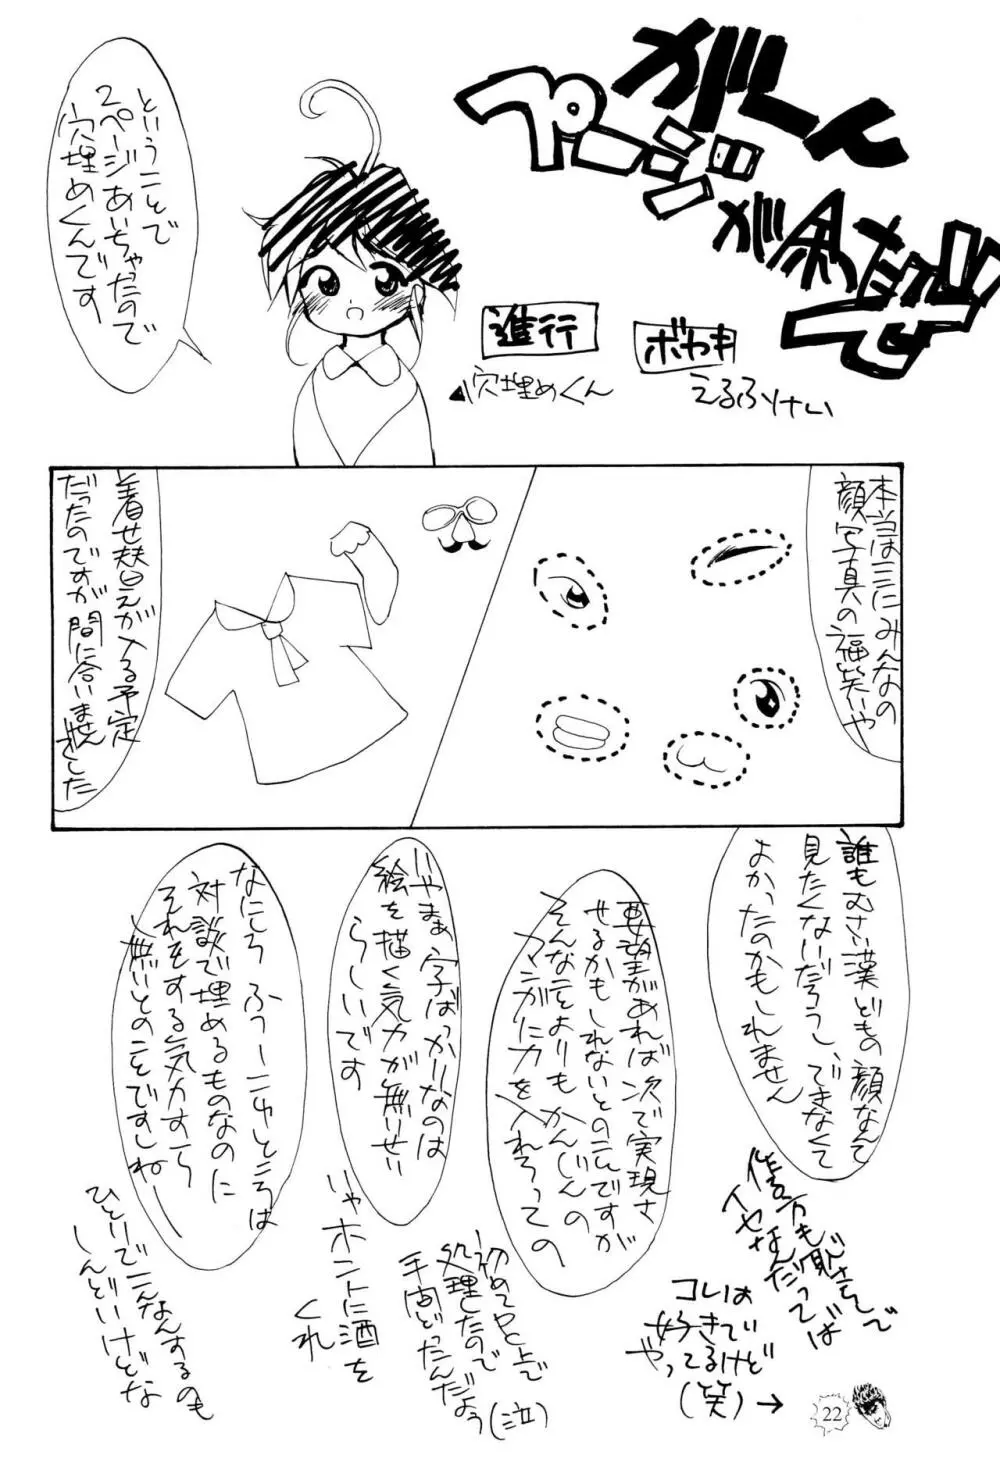 がーん
ページが余ったぜ
ボヤキ
えるふけい
進行
穴埋めくん
ということで
2ページあいちゃったので
穴埋めくんです
本当はココにみんなの
顔写真の福笑いや
着せ替えが入る予定
だったのですが間に合いません
でした
誰もむさい漢どもの顔なんて
見たくないだろうし、でまなくて
よかったのかもしれません
要望があれば次で実現さ
せるかもしれないとのコトですが
そんなことよりもかんじんの
マンガに力を入れろっての
いやまぁ字ばっかりなのは
絵を描く気力が無いせい
らしいです
なにしろふつーこゆところは
対談で埋めるものなのに
それをする気力すら
無いとのことですしねー
イヤなんだってば
コレは
好きで
やってるけど
(笑)→
初めてPC上で
処理したので
手間どったんだよう
(泣)
いやホントに酒を
くれ
ひとりでこんなんするのも
しんどいけどな
22